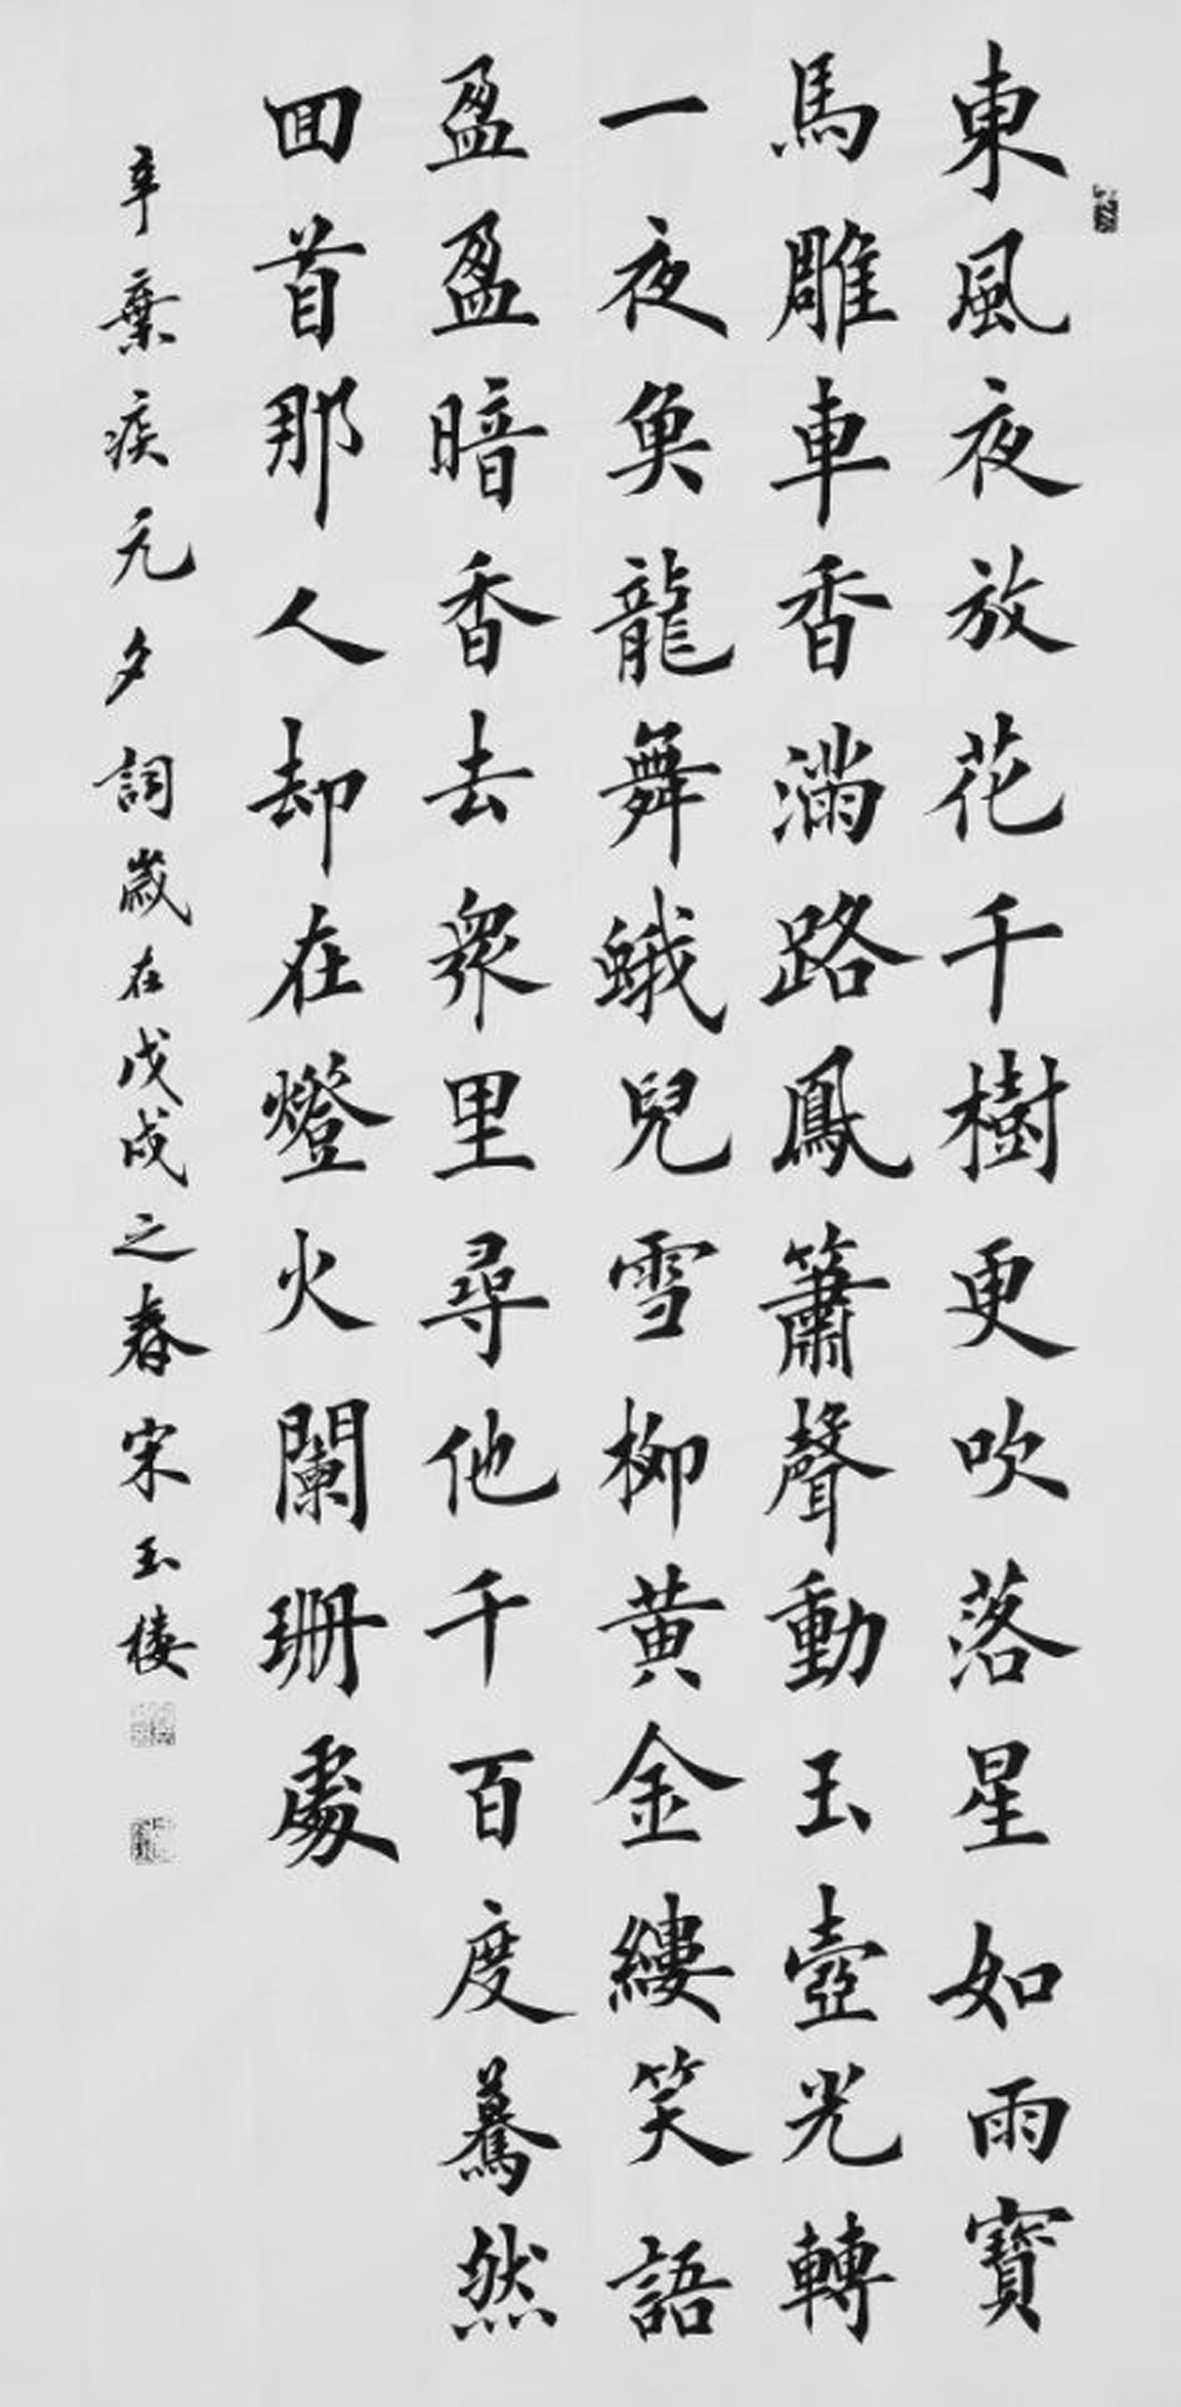 東風夜放花千樹更吹落星如雨寶
馬雕車香滿路鳳簫聲動玉壺光轉
一夜魚龍舞蛾兒雪柳黃金縷笑語
盈盈暗香去衆里尋他千百度驀然
回首那人却在燈火闌珊處
辛棄疾元夕詞歲在戊戌之春宋玉樓